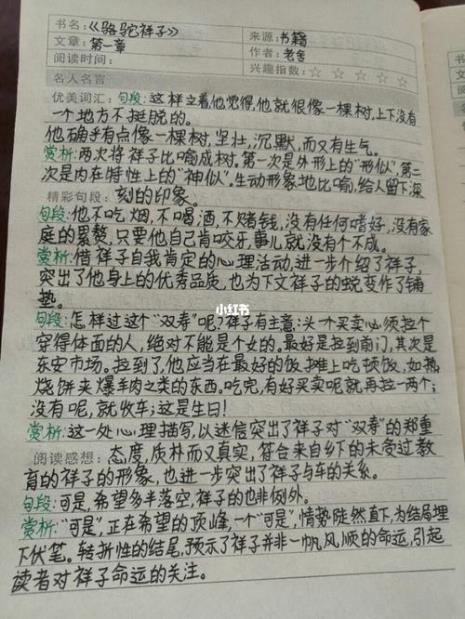 书名:《骆驼祥子》 来源:书籍
文章:第一章 作者:老舍
阅读时间: 兴趣指数:☆ ☆ ☆ ☆ ☆
名人名言
优美词汇:句段:这样立着,他觉得,他就很像一棵树,上下没有
一个地方不挺脱的。
他确乎有点像一棵树,坚壮,沉默,而又有生气。
赏析:两次将祥子比喻成树。第一次是外形上的“形似”,第二
次是内在特性上的“神似”。生动形象地比喻,给人留下深
精彩句段:刻的印象。
句段:他不吃烟,不喝酒,不赌钱,没有任何嗜好,没有家
庭的累赘,只要他自己肯咬牙,事儿就没有个不成。
赏析:借祥子自我肯定的心理活动,进一步介绍了祥子,
突出了他身上的优秀品质,也为下文祥子的蜕变作了铺
垫。
小红书
句段:怎样过这个“双寿”呢?祥子有主意:头一个买卖必须拉个
穿得体面的人,绝对不能是个女的。最好是拉到南门,其次是
东安市场。拉到了,他应当在最好的饭摊上吃顿饭,如热
烧饼夹爆羊肉之类的东西。吃完,有好买卖呢就再拉一两个;
没有呢,就收车;这是生日!
赏析:这一处心理描写,以迷信突出了祥子对“双寿”的郑重
阅读感想:态度,质朴而又真实,符合来自乡下的未受过教
育的祥子的形象,也进一步突出了祥子与车的关系。
句段:可是,希望多半落空,祥子的也非例外。
赏析:“可是”,正在希望的顶峰,一个“可是”,情势陡然直下,为结局埋
下伏笔。转折性的结尾,预示了祥子并非一帆风顺的命运,引起
读者对祥子命运的关注。